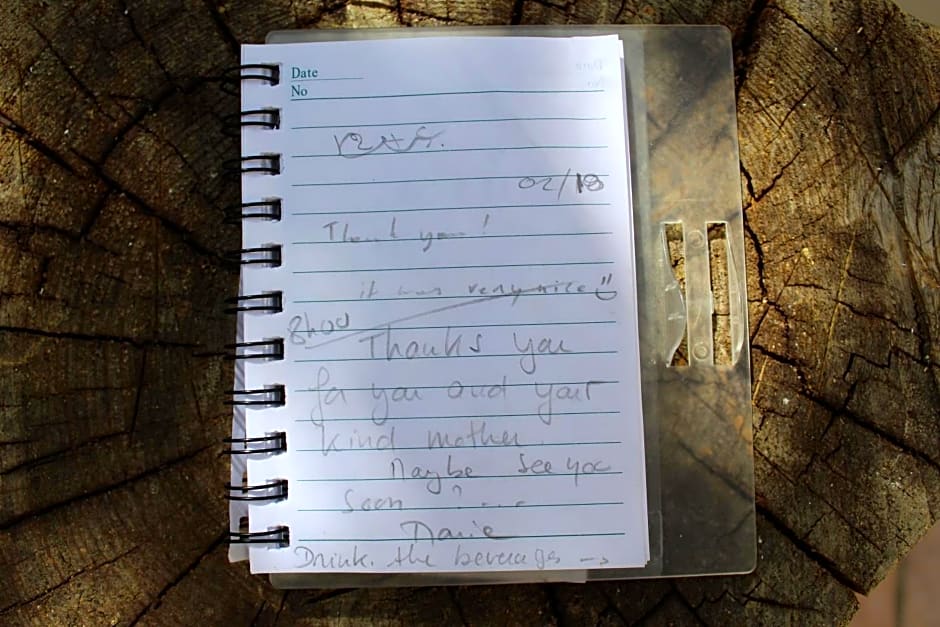 Date
No
02/18
Thank you!
it was very nice
8h00
Thanks you
for you and your
kind mother.
Maybe see you
soon ? ....
Drink. the beverages →